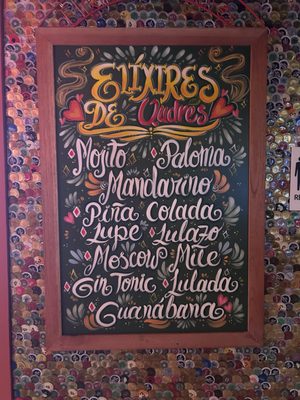 ELIXIRES
DE Andres
Mojito Paloma
Mandarino
Piña Colada
Lupe Lulazo
Moscow Mile
Gin Tonic Lulada
Guanábana